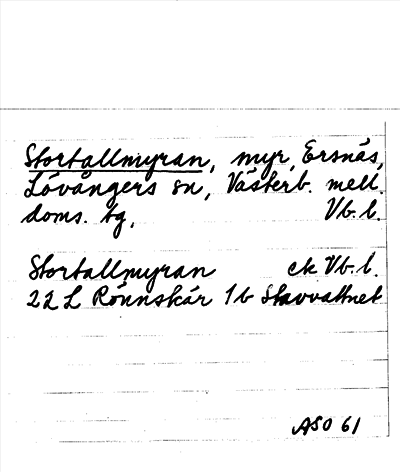 Stortallmyran, myr, Ersnäs,
Lövångers sn, Västerb. mell.
doms. tg, Vb. l.
Stortallmyran ek Vb. l.
22 L Rönnskär 1 b Stavvattnet
ASO 61